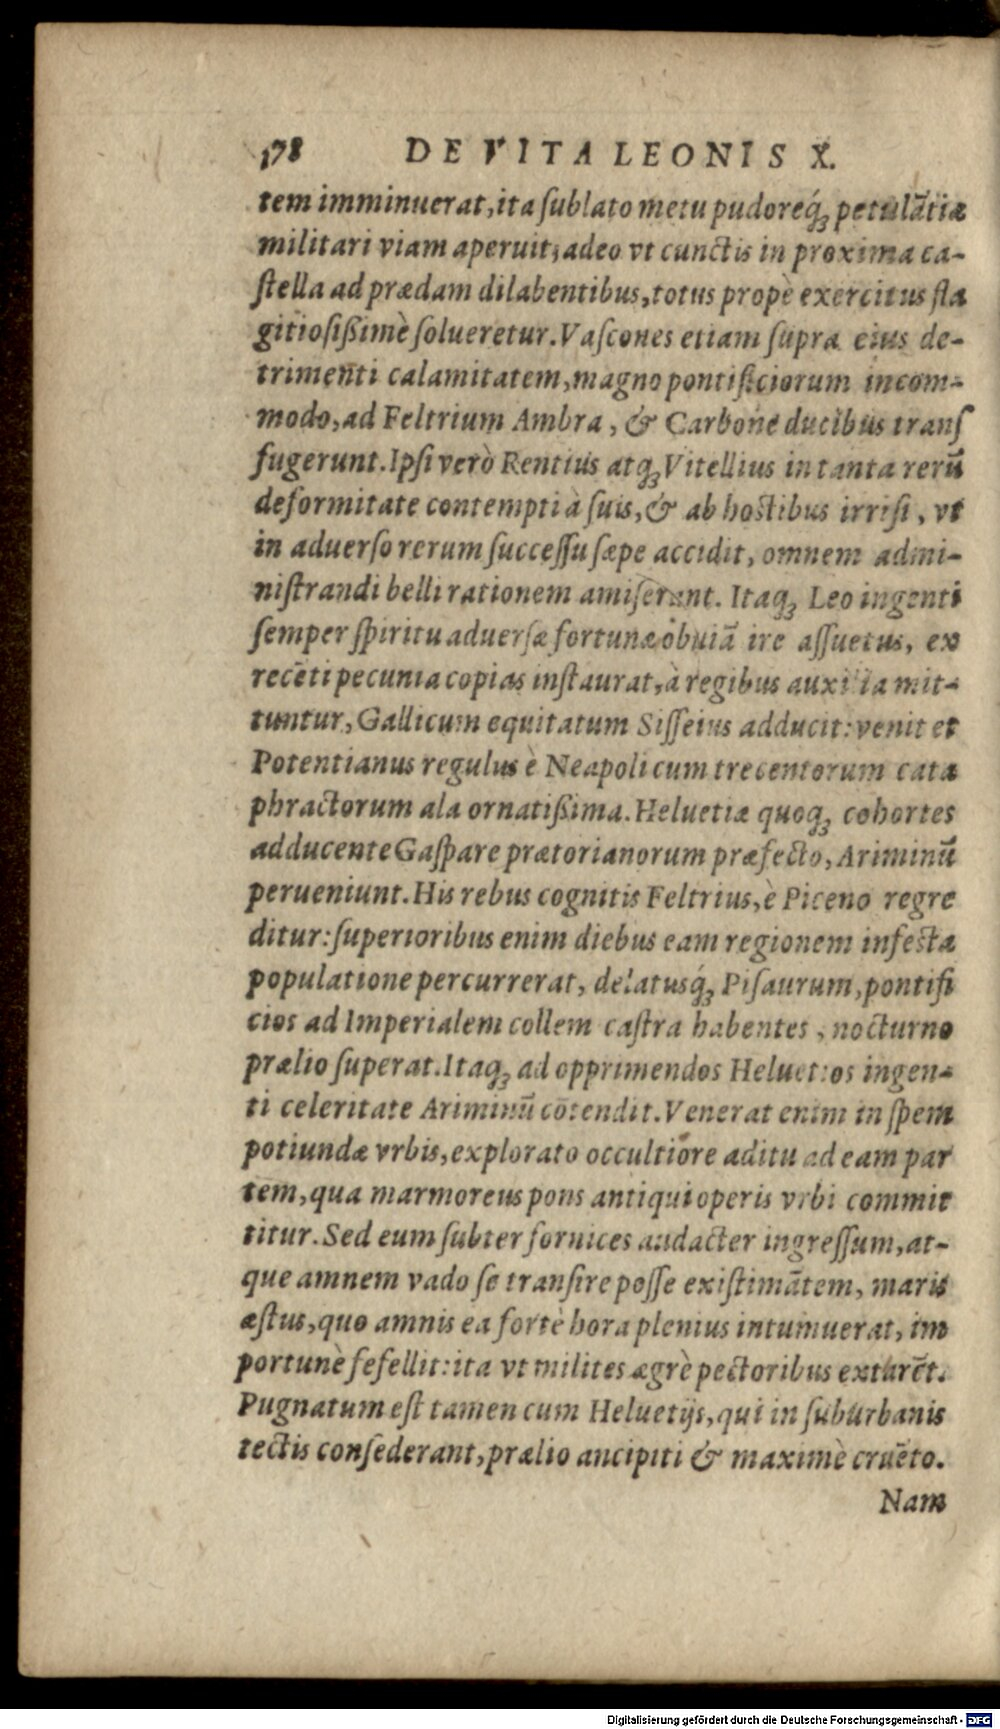 178 DE VITA LEONIS X.
tem imminuerat, ita ſublato metu pudoreq́ꝫ petulātiæ
militari viam aperuit, adeo vt cunctis in proxima ca-
ſtella ad prædam dilabentibus, totus propè exercitus fla
gitioſißimè ſolueretur. Vaſcones etiam ſupra eius de-
trimenti calamitatem, magno pontificiorum incom-
modo, ad Feltrium Ambra, & Carbone ducibus tranſ
fugerunt. Ipſi verò Rentius atqꝫ Vitellius in tanta rerū
deformitate contempti à ſuis, & ab hoſtibus irriſi, vt
in aduerſo rerum ſucceſſu ſæpe accidit, omnem admi-
niſtrandi belli rationem amiſerunt. Itaqꝫ Leo ingenti
ſemper ſpiritu aduerſæ fortunæ obuiā ire aſſuetus, ex
recēti pecunia copias inſtaurat, à regibus auxilia mit-
tuntur, Gallicum equitatum Siſſeius adducit: venit et
Potentianus regulus è Neapoli cum trecentorum cata
phractorum ala ornatißima. Heluetiæ quoqꝫ cohortes
adducente Gaſpare prætorianorum præfecto, Ariminū
perueniunt. His rebus cognitis Feltrius, è Piceno regre
ditur: ſuperioribus enim diebus eam regionem infeſta
populatione percurrerat, delatusq́ꝫ Piſaurum, pontifi
cios ad Imperialem collem caſtra habentes, nocturno
prælio ſuperat. Itaqꝫ ad opprimendos Heluetios ingen-
ti celeritate Ariminū cōtendit. Venerat enim in ſpem
potiundæ vrbis, explorato occultiore aditu ad eam par
tem, qua marmoreus pons antiqui operis vrbi commit
titur. Sed eum ſubter fornices audacter ingreſſum, at-
que amnem vado ſe tranſire poſſe exiſtimātem, maris
æſtus, quo amnis ea fortè hora plenius intumuerat, im
portunè fefellit: ita vt milites ægrè pectoribus extarēt.
Pugnatum eſt tamen cum Heluetijs, qui in ſuburbanis
tectis conſederant, prælio ancipiti & maximè cruēto.
Nam
Digitalisierung gefördert durch die Deutsche Forschungsgemeinschaft - DFG